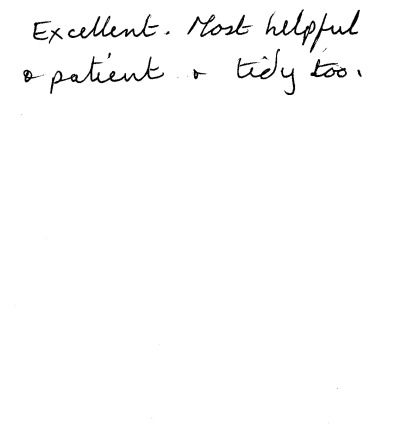 Excellent. Most helpful
& patient & tidy too.